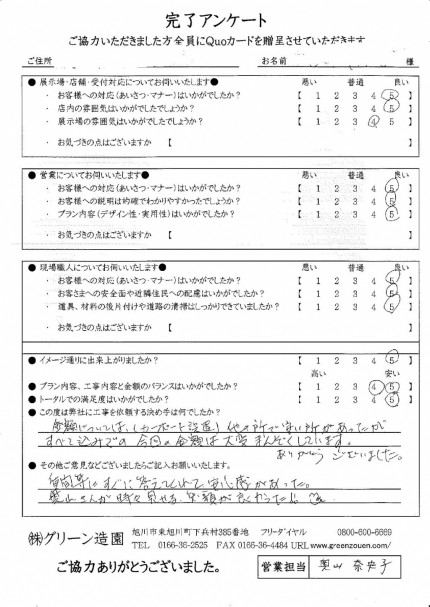 完了アンケート
ご協力いただきました方全員にQuoカードを贈呈させていただきます
ご住所 お名前 様
●展示場・店舗・受付対応についてお伺いいたします● 悪い 普通 良い
・ お客様への対応(あいさつ・マナー)はいかがでしたか? 【 1 2 3 4 5
・ 店内の雰囲気はいかがでしたでしょうか? 【 1 2 3 4 5
・ 展示場の雰囲気はいかがでしたか? 【 1 2 3 4 5
・ お気づきの点はございますか 【
●営業についてお伺いいたします● 悪い 普通 良い
・ お客様への対応(あいさつ・マナー)はいかがでしたか? 【 1 2 3 4 5
・ お客様への説明は的確でわかりやすかったでしょうか? 【 1 2 3 4 5
・ プラン内容(デザイン性・実用性)はいかがでしたか? 【 1 2 3 4 5
・ お気づきの点はございますか 【
●現場職人についてお伺いいたします● 悪い 普通 良い
・ お客様への対応(あいさつ・マナー)はいかがでしたか? 【 1 2 3 4 5
・ お客さまへの安全面や近隣住民への配慮はいかがでしたか? 【 1 2 3 4 5
・ 道具、材料の後片付けや道路の清掃はしっかりできていましたか? 【 1 2 3 4 5
・ お気づきの点はございますか 【
●イメージ通りに出来上がりましたか? 【 1 2 3 4 5
高い 安い
●プラン内容、工事内容と金額のバランスはいかがでしたか? 【 1 2 3 4 5
●トータルでの満足度はいかがでしたか? 【 1 2 3 4 5
●この度は弊社に工事を依頼する決め手は何でしたか?
金額については、(カーポート設置)他の所で安い所があったが
すべて込みでの今回の金額は大変まんぞくしています。
ありがとうございました。
●その他ご意見などございましたらご記入お願いいたします。
質問等にすぐに答えてくれて安心感があった。
奥山さんが時々見せる笑顔が良かった!!
㈱グリーン造園 旭川市東旭川町下兵村385番地 フリーダイヤル 0800-600-6669
TEL 0166-36-2525 FAX 0166-36-4484 URL www/greenzouen.com/
ご協力ありがとうございました。 営業担当 奥山 奈央子